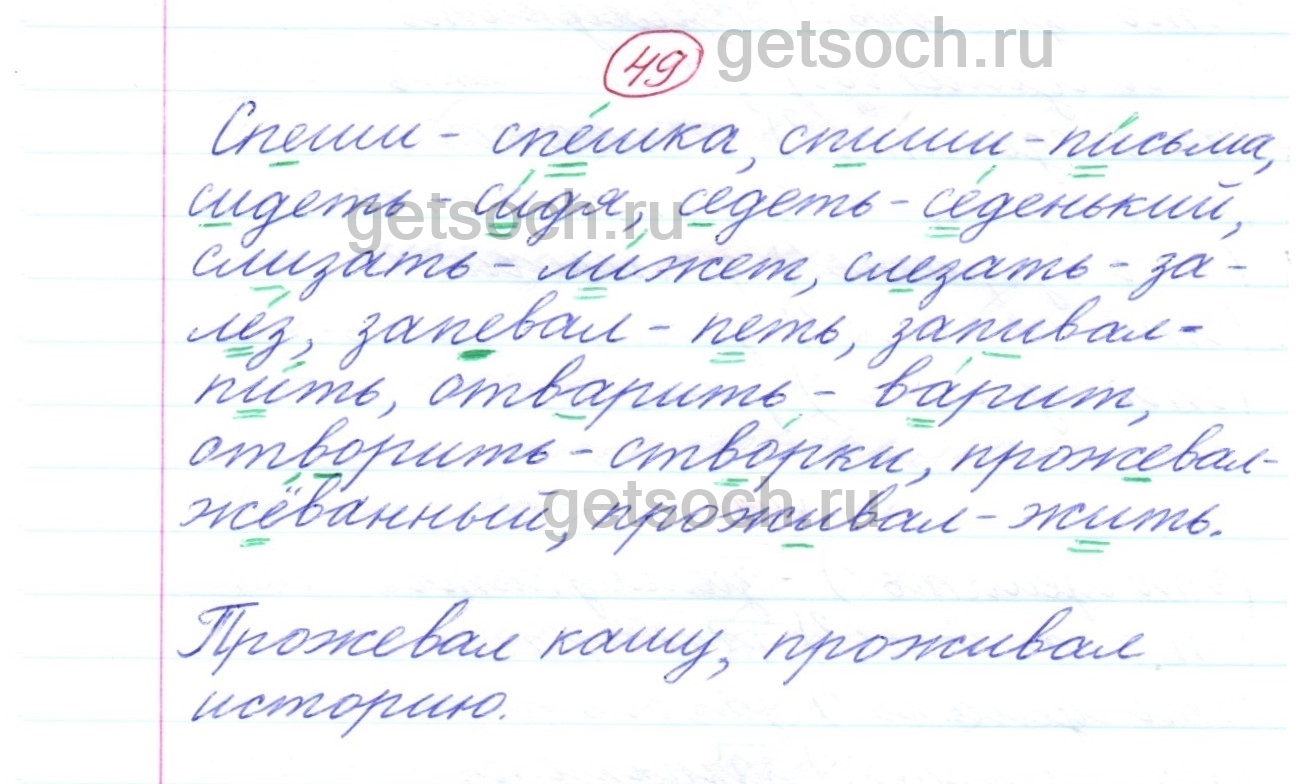 49 getsoch.ru
Спеши - спе́шка, спиши - пи́сьма,
сидеть - си́дя, седеть - се́денький,
getsoch.ru
слизать - ли́жет, слезать - за-
ле́з, запевал - петь, запивал-
пи́ть, отварить - ва́рит,
отворить - ство́рки, прожевал-
жёванный, проживал - жить.
getsoch.ru
Прожевал кашу, проживал
историю.